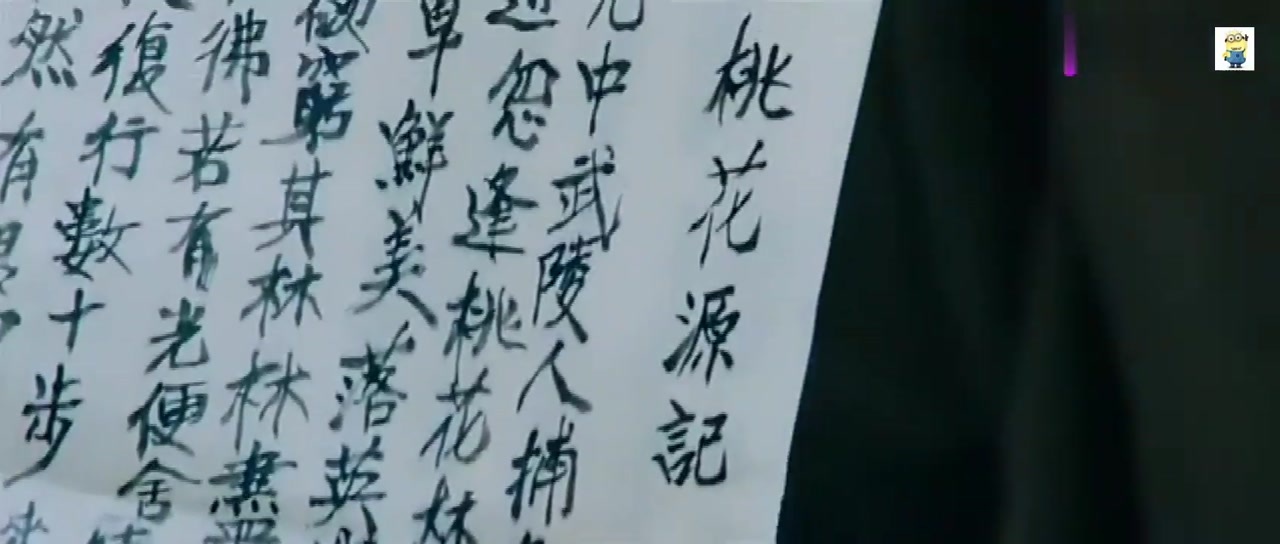 桃花源記
元中武陵人捕
近忽逢桃花林
草鮮美落英
欲窮其林林盡
彿若有光便舍
復行數十步
然有